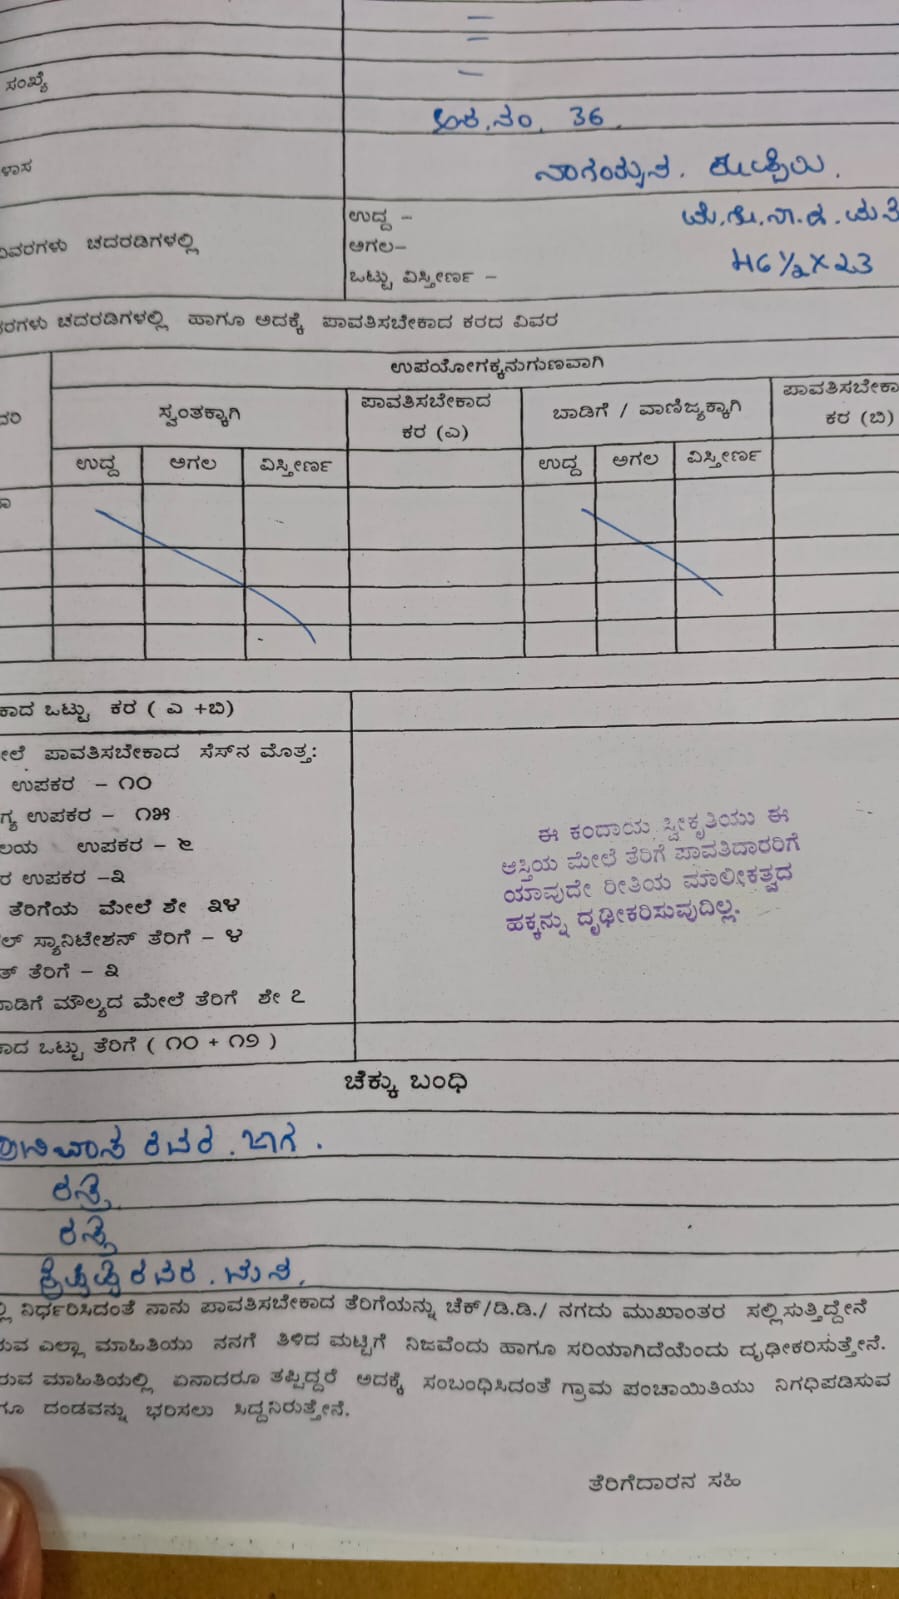 ಸಂಖ್ಯೆ
ನಂ. 36
ಉದ್ದ –
ಅಗಲ–
ಒಟ್ಟು ವಿಸ್ತೀರ್ಣ –
ವಿವರಗಳು ಚದರಡಿಗಳಲ್ಲಿ
46 ½ X 23
ರಗಳು ಚದರಡಿಗಳಲ್ಲಿ ಹಾಗೂ ಅದಕ್ಕೆ ಪಾವತಿಸಬೇಕಾದ ಕರದ ವಿವರ
ಉಪಯೋಗಕ್ಕನುಗುಣವಾಗಿ
ಸ್ವಂತಕ್ಕಾಗಿ
ಪಾವತಿಸಬೇಕಾದ
ಕರ (ಎ)
ಬಾಡಿಗೆ / ವಾಣಿಜ್ಯಕ್ಕಾಗಿ
ಪಾವತಿಸಬೇಕಾ
ಕರ (ಬಿ)
ಉದ್ದ ಅಗಲ ವಿಸ್ತೀರ್ಣ ಉದ್ದ ಅಗಲ ವಿಸ್ತೀರ್ಣ
ಕಾದ ಒಟ್ಟು ಕರ ( ಎ +ಬಿ)
ಲೆ ಪಾವತಿಸಬೇಕಾದ ಸೆಸ್‌ನ ಮೊತ್ತ:
ಉಪಕರ – ೧೦
ಗ್ಯ ಉಪಕರ – ೧೫
ಲಯ ಉಪಕರ – ೬
ರ ಉಪಕರ –೩
ತೆರಿಗೆಯ ಮೇಲೆ ಶೇ ೩೪
ಲ್ ಸ್ಯಾನಿಟೇಶನ್ ತೆರಿಗೆ – ೪
ತ್ ತೆರಿಗೆ – ೩
ಾಡಿಗೆ ಮೌಲ್ಯದ ಮೇಲೆ ತೆರಿಗೆ ಶೇ ೭
ಈ ಕಂದಾಯ ಸ್ವೀಕೃತಿಯು ಈ
ಆಸ್ತಿಯ ಮೇಲೆ ತೆರಿಗೆ ಪಾವತಿದಾರರಿಗೆ
ಯಾವುದೇ ರೀತಿಯ ಮಾಲೀಕತ್ವದ
ಹಕ್ಕನ್ನು ದೃಢೀಕರಿಸುವುದಿಲ್ಲ.
ಕಾದ ಒಟ್ಟು ತೆರಿಗೆ ( ೧೦ + ೧೨ )
ಚೆಕ್ಕು ಬಂಧಿ
ರವರ . ಜಾಗ .
ರಸ್ತೆ
ರಸ್ತೆ
ರವರ . ಮನೆ.
ಲ್ಲಿ ನಿರ್ಧರಿಸಿದಂತೆ ನಾನು ಪಾವತಿಸಬೇಕಾದ ತೆರಿಗೆಯನ್ನು ಚೆಕ್/ಡಿ.ಡಿ./ ನಗದು ಮುಖಾಂತರ ಸಲ್ಲಿಸುತ್ತಿದ್ದೇನೆ
ರುವ ಎಲ್ಲಾ ಮಾಹಿತಿಯು ನನಗೆ ತಿಳಿದ ಮಟ್ಟಿಗೆ ನಿಜವೆಂದು ಹಾಗೂ ಸರಿಯಾಗಿದೆಯೆಂದು ದೃಢೀಕರಿಸುತ್ತೇನೆ.
ರುವ ಮಾಹಿತಿಯಲ್ಲಿ ಏನಾದರೂ ತಪ್ಪಿದ್ದರೆ ಅದಕ್ಕೆ ಸಂಬಂಧಿಸಿದಂತೆ ಗ್ರಾಮ ಪಂಚಾಯಿತಿಯು ನಿಗಧಿಪಡಿಸುವ
ಗೂ ದಂಡವನ್ನು ಭರಿಸಲು ಸಿದ್ದನಿರುತ್ತೇನೆ.
ತೆರಿಗೆದಾರನ ಸಹಿ